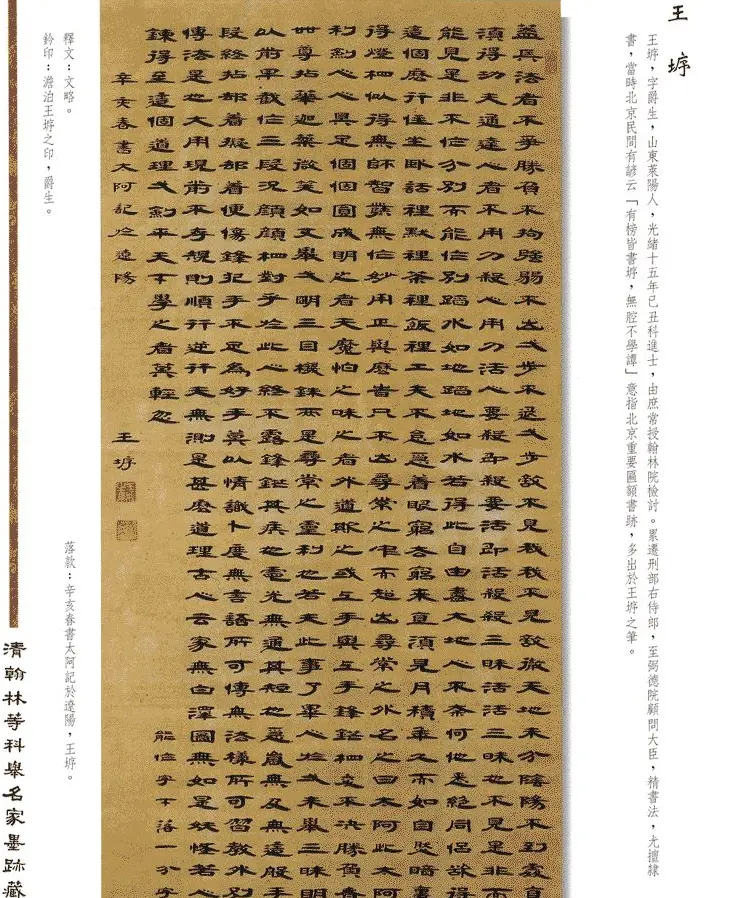 王垿
王垿,字爵生,山東萊陽人,光緒十五年己丑科進士,由庶常授翰林院檢討。累遷刑部右侍郎,至弼德院顧問大臣,精書法,尤擅隸
書,當時北京民間有諺云「有榜皆書垿,無腔不學譚」意指北京重要匾額書跡,多出於王垿之筆。
蓋兵法者不爭勝負不拘強弱不出一步不退一步敵不見我我不見敵徹天地未分陰陽不到處直
須得功夫通達人者不用刀殺人用刀活人要殺即殺要活即活殺殺三昧活活三昧也不見是非而
能見是非不作分別而能作別蹈水如地蹈地如水若得此自由盡大地人不奈何他悉絕同侶欲得
這個麼行住坐臥話裡默裡茶裡飯裡工夫不怠急着眼窮去窮來直須見月積年久而如自然暗裏
得燈相似得無師智發無作妙用正與麼時只不出尋常之中而超出尋常之外名之曰太阿此太阿
利劍人人具足個個圓成明之者天魔怕之昧之者外道欺之或上手與上手鋒鋩相交不決勝負者
世尊拈華迦葉微笑如又舉一明三目機銖兩是尋常之靈利也若夫此事了畢人於一未舉三昧明
以前早截作三段況顏顏相對乎於此人終不露鋒鋩其疾也電光無通其短也急嵐無及無這般手
段終拈却着擬却着便傷鋒犯手不足為好手莫以情識卜度無言語所可傳無法樣所可習教外別
傳法是也大用現前不存規則順行逆行天無測是甚麼道理古人云家無白澤圖無如是妖怪若人
鍊得至這個道理一劍平天下學之者莫輕忽
能作字下落一分字
辛亥春書太阿記於遼陽 王垿
釋文:文略。
落款:辛亥春書太阿記於遼陽,王垿。
鈐印:澹泊王垿之印,爵生。
清翰林等科舉名家墨跡藏